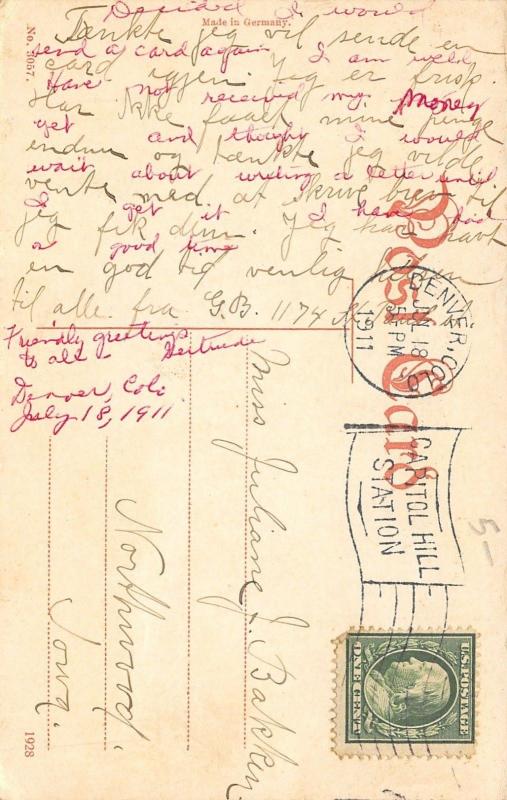 Made in Germany.
No. 3057.
Decided I would
Tænkte jeg vil sende en
send a card again I am well
card igjen. Jeg er frisk
Have not received my money
Har ikke faaet mine penge
yet and thought I would
endnu og tænkte jeg vilde
wait about writing a letter until
vente med at skrive brev til
I get it I have had
jeg fik dem. Jeg har havt
a good time
en god tid venlig hilsen
til alle. fra G.B. 1174
Friendly greetings
to all - Gertrude
Denver, Colo
July 18, 1911
Post Card
DENVER, COLO.
JUL 18
5 PM
1911
CAPITOL HILL
STATION
5-
Miss Juliane J. Bakken
Northwood,
Iowa.
U.S. POSTAGE
ONE CENT
1928